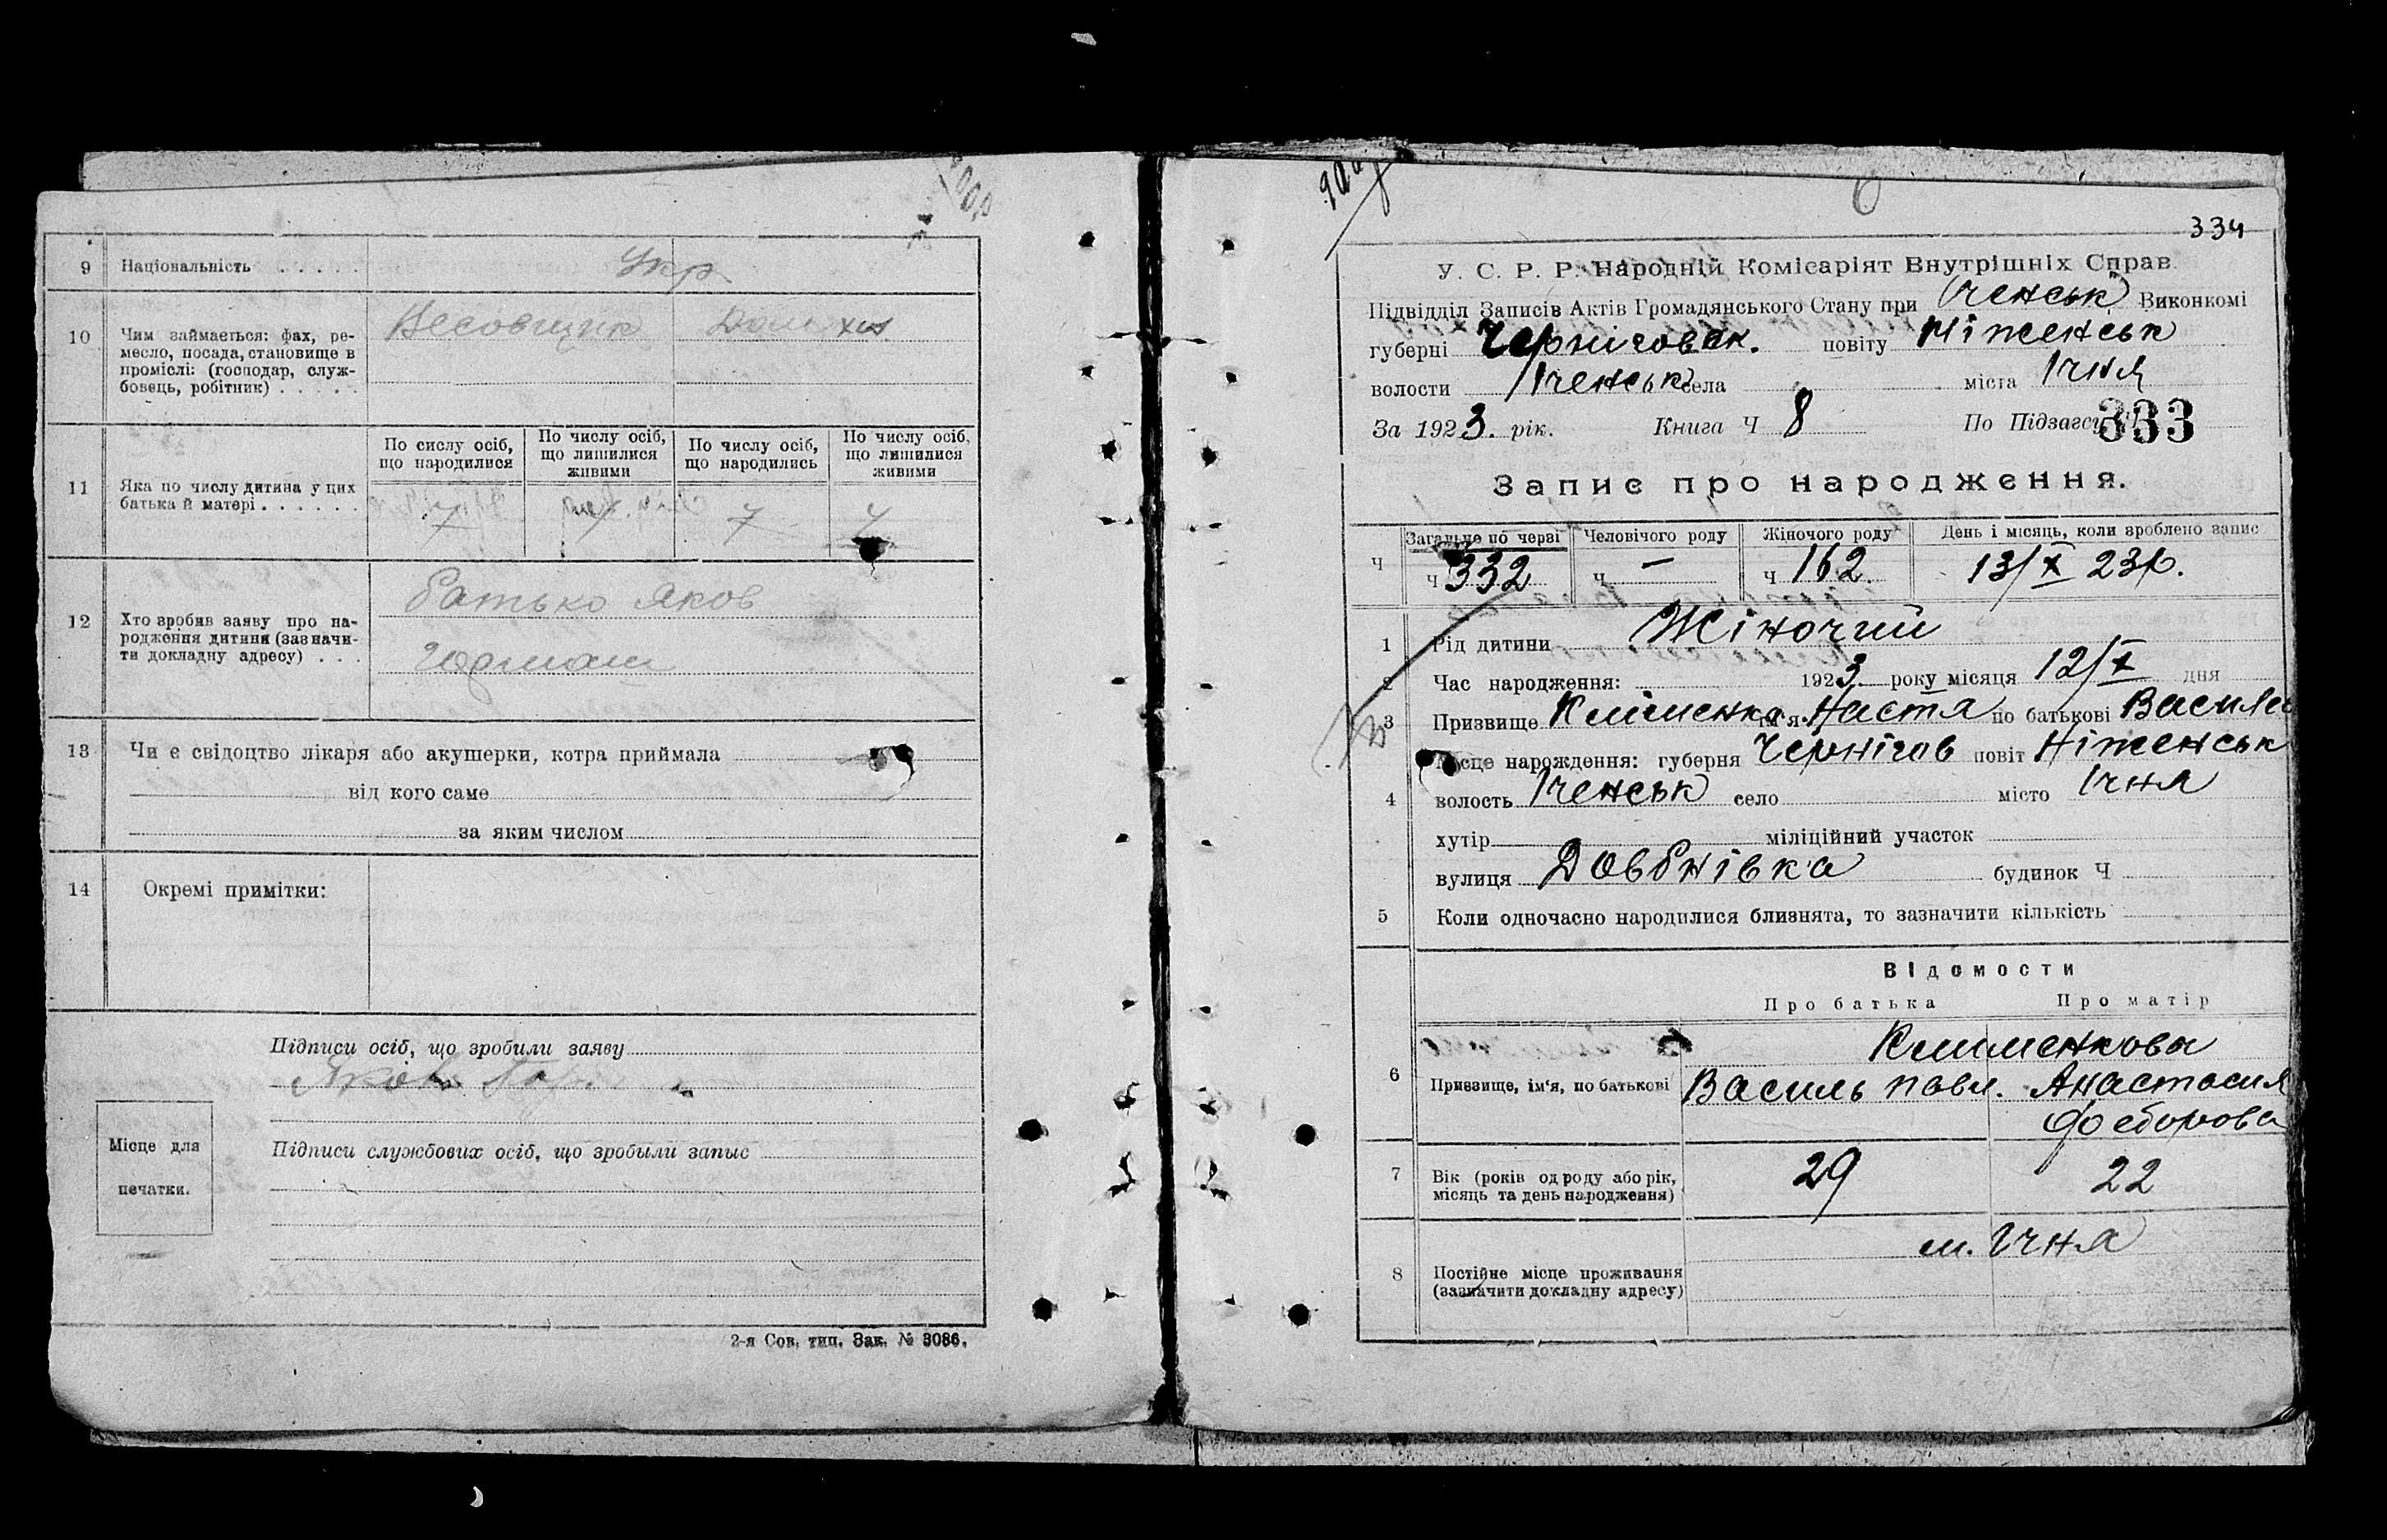 9 Національність Укр
10 Чим займається: фах, ре-
месло, посада, становище в
проміслі: (господар, служ-
бовець, робітник)
Весовщик Дом. хоз.
11 Яка по числу дитина у цих
батька й матері
По сислу осіб,
що народилися
По числу осіб,
що лишилися
живими
По числу осіб,
що народились
По числу осіб,
що лишилися
живими
7 7
12 Хто зробив заяву про на-
родження дитини (зазначи-
ти докладну адресу)
батько Яков
13 Чи є свідоцтво лікаря або акушерки, котра приймала
від кого саме
за яким числом
14 Окремі примітки:
Підписи осіб, що зробили заяву
Яков
Місце для
печатки.
Підписи службових осіб, що зробыли запыс
2-я Сов. тип. Зак. № 3086.
334
У. С. Р. Р. Народній Комісаріят Внутрішніх Справ
Підвідділ Записів Актів Громадянського Стану при Іченськ Виконкомі
губерні Черніговск. повіту Ніженськ
волости Іченськ села міста Ічня
За 1923. рік. Книга Ч 8 По Підзагсу Ч 333
Запис про народження.
Загальне по черзі Человічого роду Жіночого роду День і місяць, коли зроблено запис
Ч Ч 332 Ч — Ч 162 13/X 23р.
1 Рід дитини Жіночий
2 Час народження: 1923 року місяця 12/X дня
3 Призвище Клименко ім'я Настя по батькові Василів
Місце нарождення: губерня Чернігов повіт Ніженськ
4 волость Іченськ село місто Ічня
хутір міліційний участок
вулиця Довбнівка будинок Ч
5 Коли одночасно народилися близнята, то зазначити кількість
Відомости
Про батька Про матір
Клименкова
6 Призвище, ім'я, по батькові Василь Павл. Анастасия
Федорова
7 Вік (років од роду або рік,
місяць та день народження)
29 22
м. Ічня
8 Постійне місце проживання
(зазначити докладну адресу)